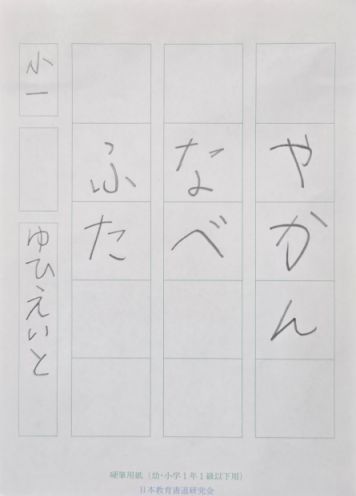 やかん
なべ
ふた
小一
ゆひえいと
硬筆用紙（幼・小学1年1級以下用）
日本教育書道研究会